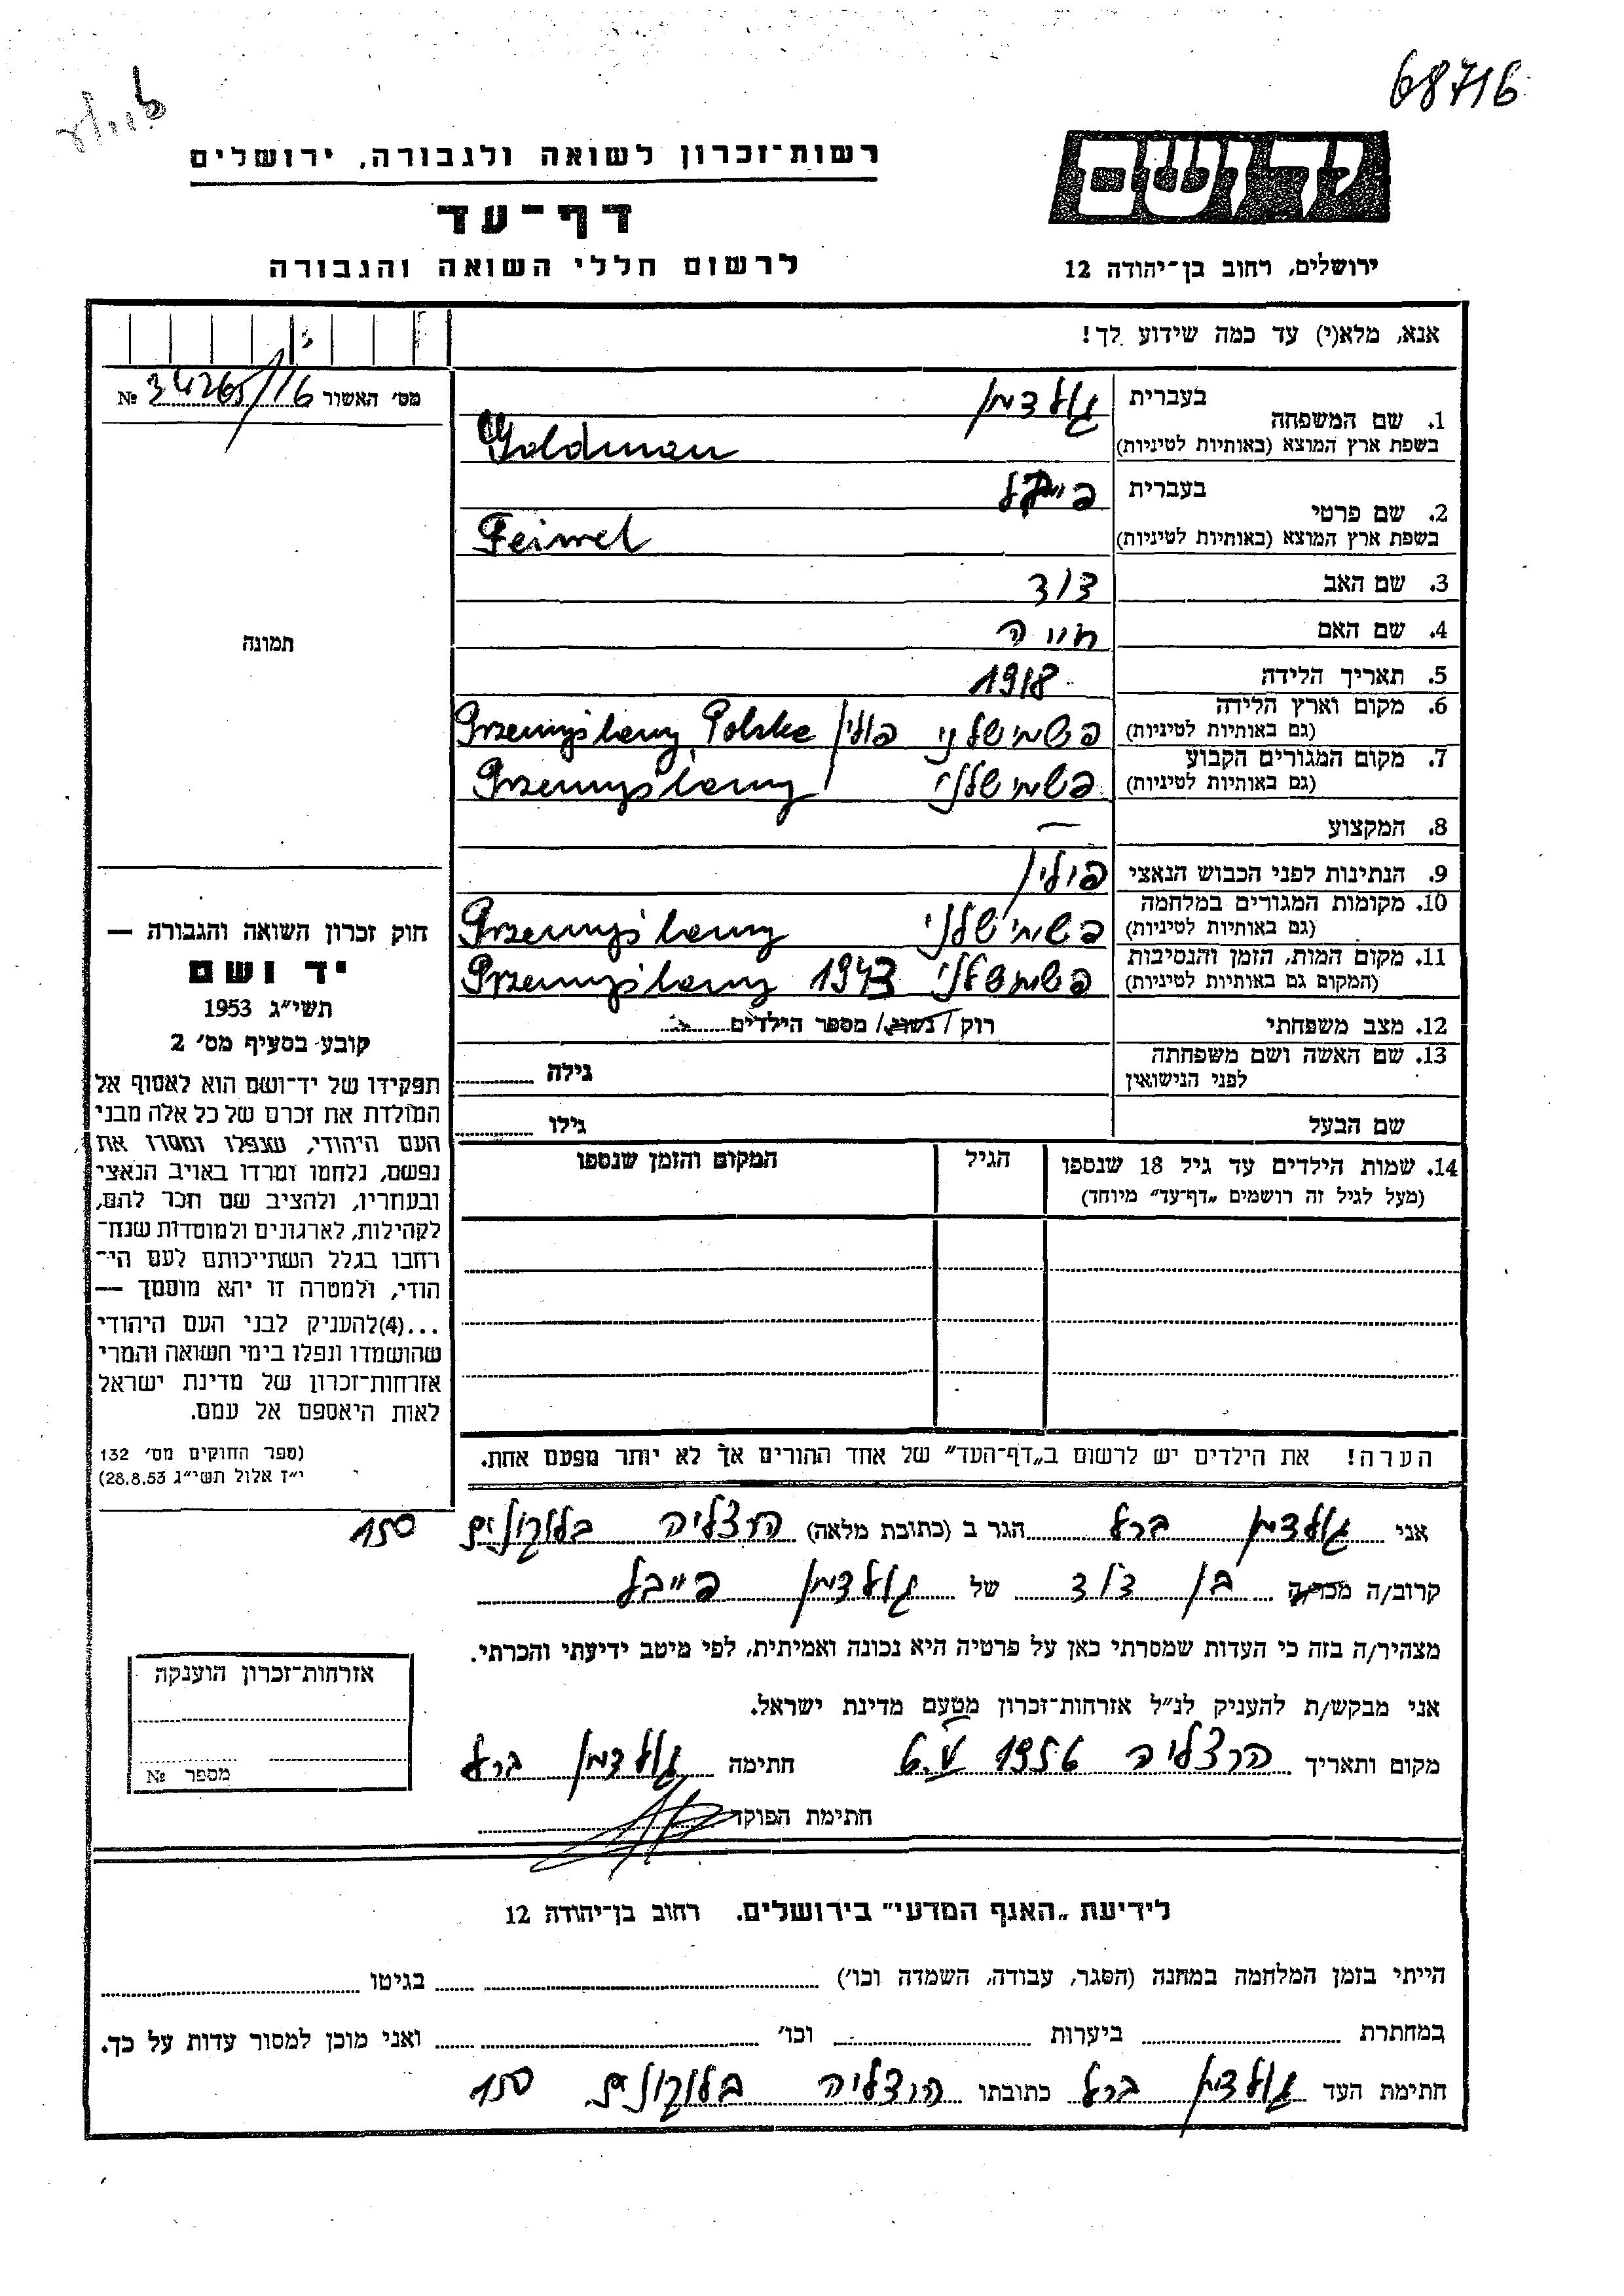 68716
רשות־זכרון לשואה ולגבורה, ירושלים
דף־עד
לרשום חללי השואה והגבורה
יד ושם
ירושלים, רחוב בן־יהודה 12
אנא, מלא(י) עד כמה שידוע לך!
מס׳ האשור 34265/16 №
1. שם המשפחה בעברית גולדמן
בשפת ארץ המוצא (באותיות לטיניות) Goldman
2. שם פרטי בעברית
בשפת ארץ המוצא (באותיות לטיניות) Feiwel
3. שם האב דוד
4. שם האם חוה
5. תאריך הלידה 1918
6. מקום וארץ הלידה
(גם באותיות לטיניות) פולין Polska
7. מקום המגורים הקבוע
(גם באותיות לטיניות)
8. המקצוע —
9. הנתינות לפני הכבוש הנאצי פולין
10. מקומות המגורים במלחמה
(גם באותיות לטיניות)
11. מקום המות, הזמן והנסיבות
(המקום גם באותיות לטיניות) 1943
12. מצב משפחתי רוק / נשוי / מספר הילדים
13. שם האשה ושם משפחתה
לפני הנישואין גילה
שם הבעל גילו
14. שמות הילדים עד גיל 18 שנספו הגיל המקום והזמן שנספו
(מעל לגיל זה רושמים „דף־עד״ מיוחד)
הערה! את הילדים יש לרשום ב„דף־העד״ של אחד ההורים אך לא יותר מפעם אחת.
תמונה
חוק זכרון השואה והגבורה —
יד ושם
תשי״ג 1953
קובע בסעיף מס׳ 2
תפקידו של יד־ושם הוא לאסוף אל
המולדת את זכרם של כל אלה מבני
העם היהודי, שנפלו ומסרו את
נפשם, נלחמו ומרדו באויב הנאצי
ובעוזריו, ולהציב שם וזכר להם,
לקהילות, לארגונים ולמוסדות שנח־
רבו בגלל השתייכותם לעם הי־
הודי, ולמטרה זו יהא מוסמך —
...(4)להעניק לבני העם היהודי
שהושמדו ונפלו בימי השואה והמרי
אזרחות־זכרון של מדינת ישראל
לאות היאספם אל עמם.
(ספר החוקים מס׳ 132
י״ז אלול תשי״ג 28.8.53)
אני גולדמן ברל הגר ב (כתובת מלאה) הרצליה 150
קרוב/ה מכר/ה בן דוד של גולדמן פייבל
מצהיר/ה בזה כי העדות שמסרתי כאן על פרטיה היא נכונה ואמיתית, לפי מיטב ידיעתי והכרתי.
אני מבקש/ת להעניק לנ״ל אזרחות־זכרון מטעם מדינת ישראל.
מקום ותאריך הרצליה 6.V 1956 חתימה גולדמן ברל
חתימת הפוקד
אזרחות־זכרון הוענקה
מספר №
לידיעת „האגף המדעי״ בירושלים. רחוב בן־יהודה 12
הייתי בזמן המלחמה במחנה (הסגר, עבודה, השמדה וכו׳) בגיטו
במחתרת ביערות וכו׳ ואני מוכן למסור עדות על כך.
חתימת העד גולדמן ברל כתובתו הרצליה 150